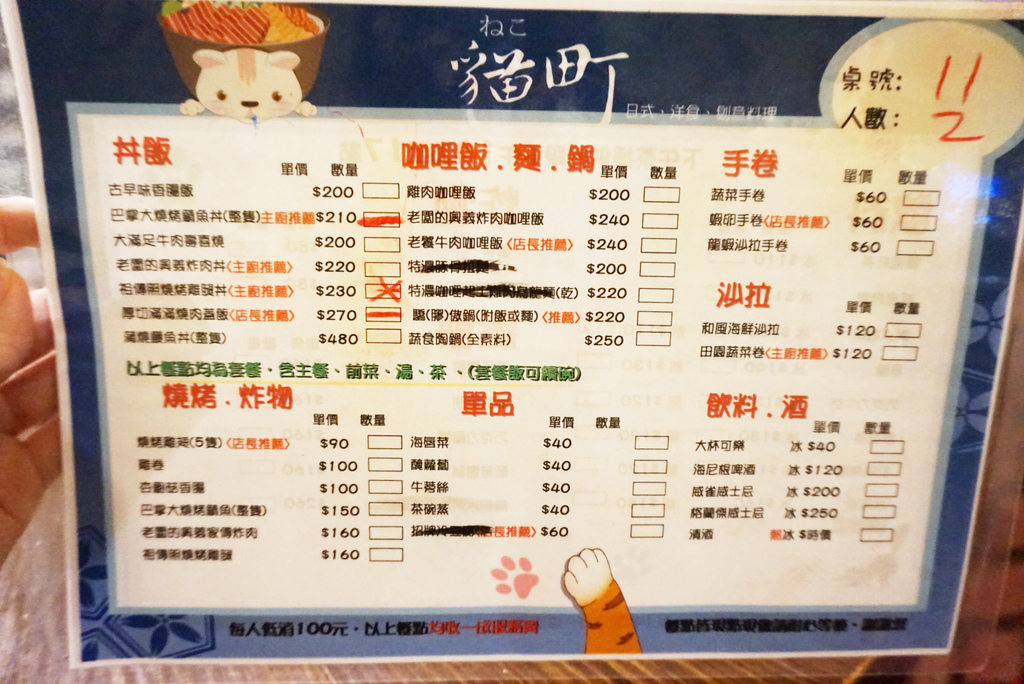 ねこ
貓町
日式、洋食、創意料理
桌號: 11
人數: 2
丼飯
單價 數量
古早味香腸飯 $200
巴拿大燒烤鯛魚丼(整隻)主廚推薦 $210
大滿足牛肉壽喜燒 $200
老闆的興義炸肉丼<主廚推薦> $220
祖傳照燒烤雞腿丼<主廚推薦> $230
厚切滿滿燒肉蓋飯<店長推薦> $270
蒲燒鰻魚丼(整隻) $480
咖哩飯.麵.鍋
單價 數量
雞肉咖哩飯 $200
老闆的興義炸肉咖哩飯 $240
老饕牛肉咖哩飯<店長推薦> $240
特濃豚骨拉麵 $200
特濃咖哩起士 烏龍麵(乾) $220
驕(膠)傲鍋(附飯或麵)<推薦> $220
蔬食陶鍋(全素料) $250
以上餐點均為套餐、含主餐、前菜、湯、茶、(套餐飯可續碗)
手卷
單價 數量
蔬菜手卷 $60
蝦卵手卷<店長推薦> $60
龍蝦沙拉手卷 $60
沙拉
單價 數量
和風海鮮沙拉 $120
田園蔬菜卷<主廚推薦> $120
燒烤.炸物
單價 數量
燒烤雞翅(5隻)<店長推薦> $90
雞卷 $100
杏鮑菇香腸 $100
巴拿大燒烤鯛魚(整隻) $150
老闆的興義家傳炸肉 $160
祖傳照燒烤雞腿 $160
單品
單價 數量
海唇菜 $40
醃蘿蔔 $40
牛蒡絲 $40
茶碗蒸 $40
招牌冷 <店長推薦> $60
飲料.酒
單價 數量
大杯可樂 冰 $40
海尼根啤酒 冰 $120
威雀威士忌 冰 $200
格蘭傑威士忌 冰 $250
清酒 熱冰 $時價
每人低消100元,以上餐點均收一成服務費
餐點皆現點現做請耐心等候,謝謝您